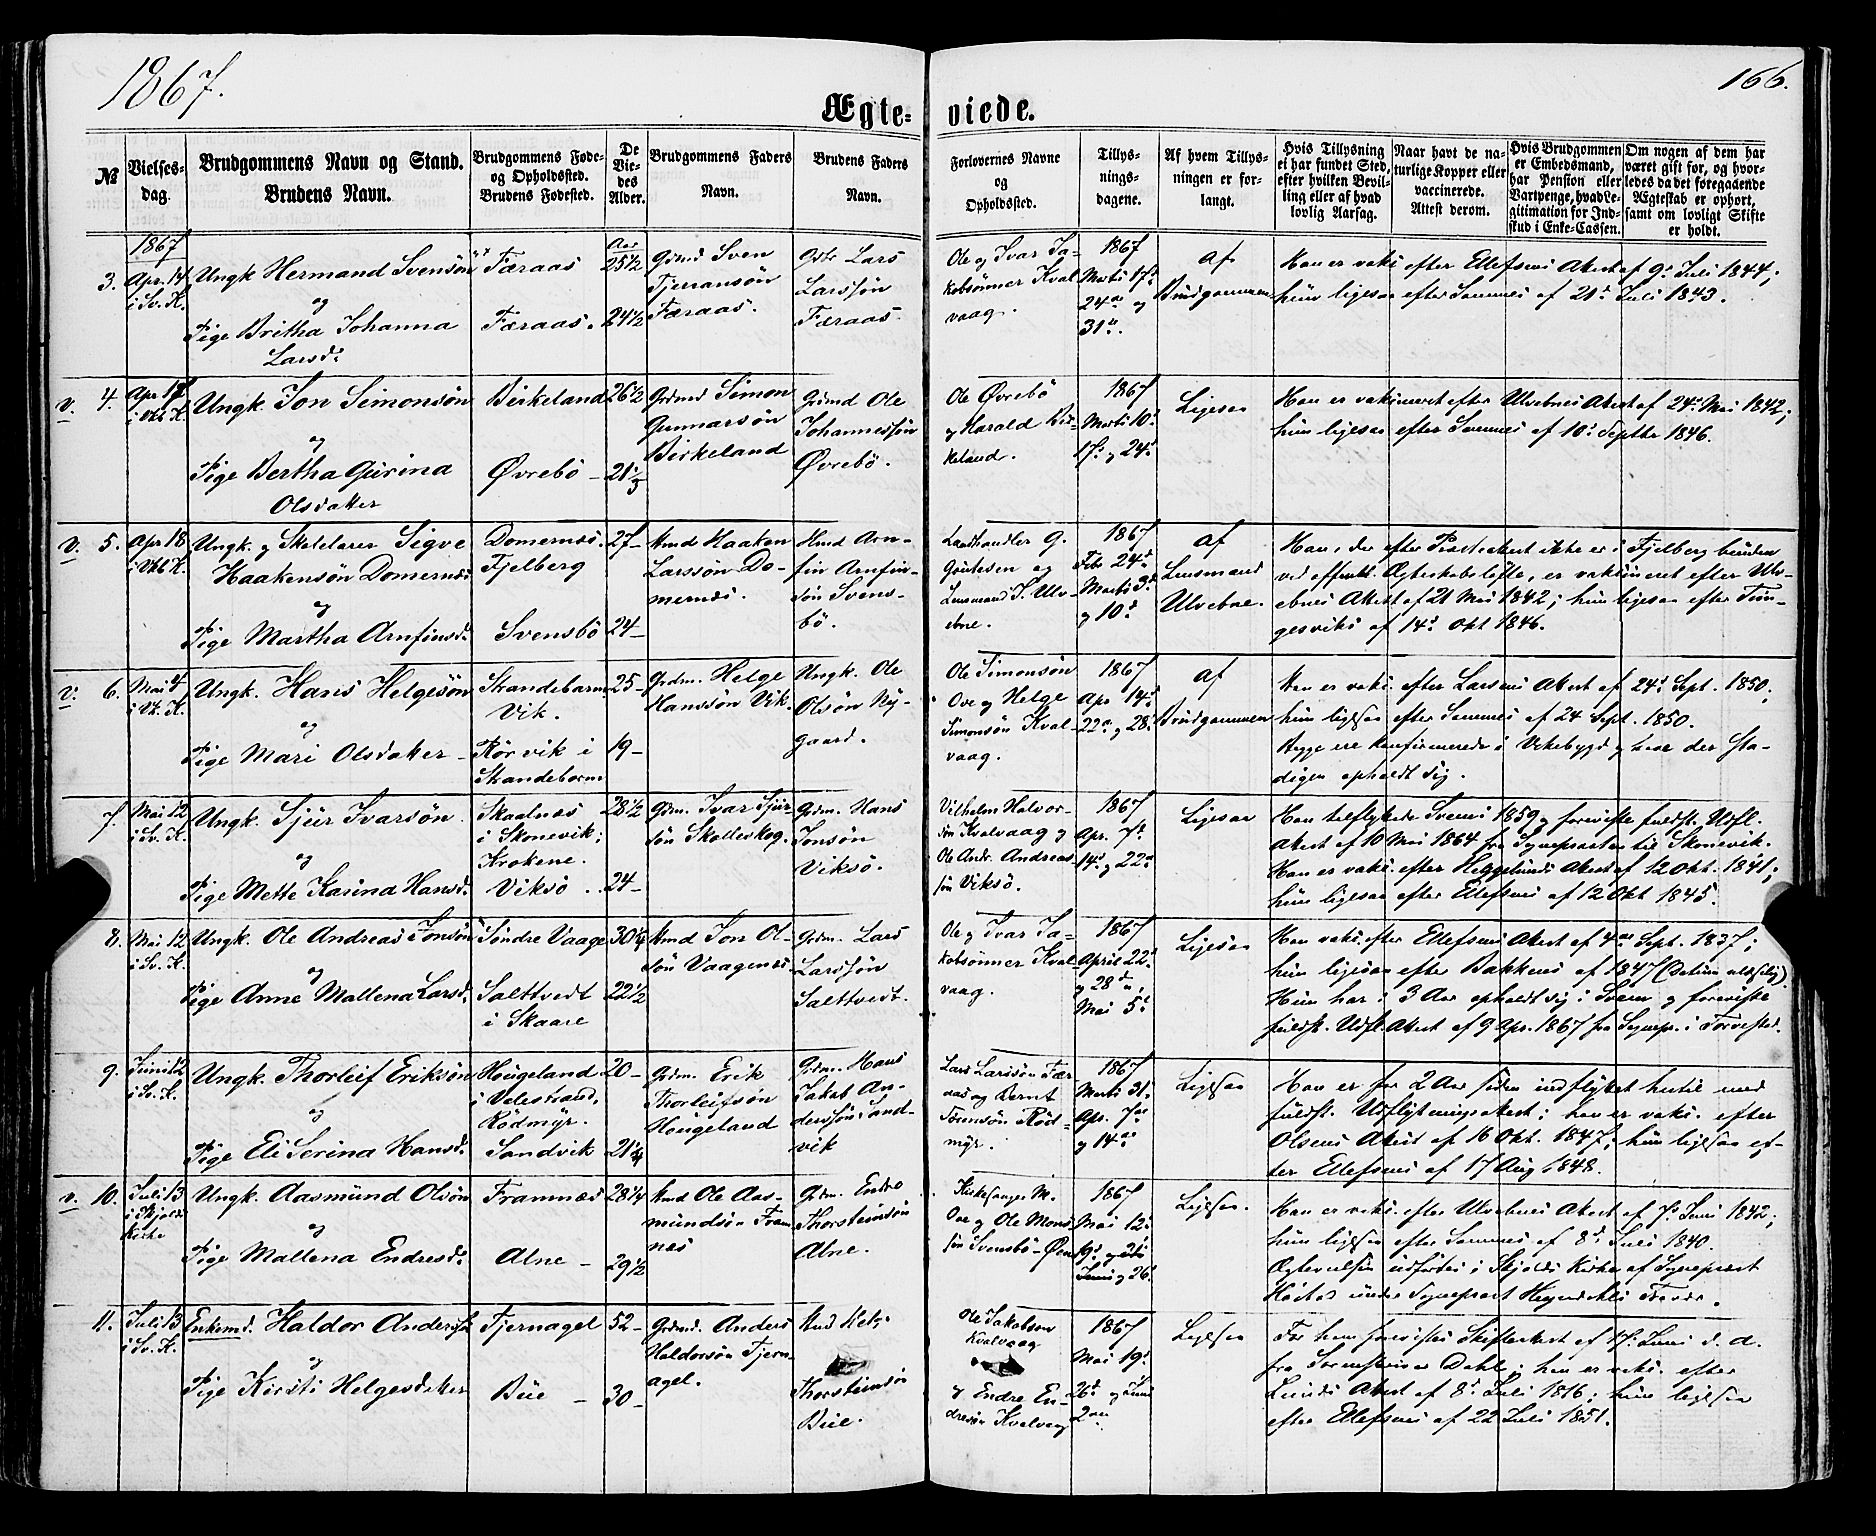 1867.
166.
Ægte- viede.
№
Vielses-
dag.
Brudgommens Navn og Stand.
Brudens Navn.
Brudgommens Føde-
og Opholdssted.
Brudens Fødested.
De
Vie-
des
Alder.
Brudgommens Faders
Navn.
Brudens Faders
Navn.
Forlovernes Navne
og
Opholdssted.
Tillys-
nings-
dagene.
Af hvem Tillys-
ningen er for-
langt.
Hvis Tillysning
ei har fundet Sted,
efter hvilken Bevil-
ling eller af hvad
lovlig Aarsag.
Naar havt de na-
turlige Kopper eller
vaccinerede.
Attest derom.
Hvis Brudgommen
er Embedsmand,
har Pension eller
Vartpenge, hvad Le-
gitimation for Ind-
skud i Enke-Cassen.
Om nogen af dem har
været gift før, og hvor-
ledes da det foregaaende
Ægteskab er ophørt,
samt om lovligt Skifte
er holdt.
1867
3.
Apr. 14
i Sv. K.
Ungk. Hermand Svensøn
og
Pige Britha Johanna
Larsd.
Færaas
Færaas.
Aar
25 1/2
24 1/2
Grdmd Sven
Færaas.
Lars
Larssøn
Færaas.
Ole og Ivar Ja-
kobsønner Kval-
vaag.
1867
Marts 17d
24de og
31te.
af
Brudgommen
Han er vaks. efter Ellefsens Attest af 9de Juli 1844;
hun ligesaa efter Sammes af 21de Juli 1843.
v. 4.
Apr 17
Ungk. Jon Simonsøn
og
Pige Bertha Gurina
Olsdatter
Birkeland
Øvrebö -
26 1/2
21 1/3
Grdmd Simon
Gunnarsøn
Birkeland
Grdmd Ole
Johannessøn
Øvrebö.
Ole Øvrebö
og Harald Bir-
keland.
1867
Marts 10d
17d og 24d
Ligesaa
Han er vaksineret efter Ulvebnes Attest af 24de Mai 1842;
hun ligesaa efter Sammes af 10de Septbr 1846.
v. 5.
Apr 18
Ungk. og Skolelærer Sigve
Haakensøn Domernæs
og
Pige Martha Arnfinsd.
Domernæs.
Fjelberg
Svensbö
27-
24-
Hmd Haaken
Larssøn Do-
mernæs.
Hmd Arn-
fin Arnfin-
søn Svens-
bö.
Landhandler G.
og
Lensmand S. Ulv-
ebne.
1867
Febr 24de
Marts 3de
og 10de
af
Lensmand
Ulvebne.
Han, der efter Præsteattest ikke er i Fjelberg bunden
ved offentl. Ægteskabsløfte, er vaksineret efter Ulv-
ebnes Attest af 21 Mai 1842; hun ligesaa efter Tun-
gesviks af 14de Okt 1846.
v. 6.
Mai 4
i Vk. K.
Ungk. Hans Helgesøn
og
Pige Mari Olsdatter -
Strandebarm
Vik.
Rörvik i
Strandebarm
25-
19-
Grdm. Helge
Hanssøn Vik.
Ungk. Ole
Olsøn Ny-
gaard.
Ole Simonsøn
Ove og Helge
Simonsøn Kval-
vaag.
1867
Apr 14de
22de og 28de
af
Brudgommen
Han er vaks. efter Larsens Attest af 24de Sept. 1850;
hun ligesaa efter Sammes af 24 Sept. 1850.
Begge ere konfirmerede i Vikebygd og have der sta-
digen opholdt sig.
7.
Mai 12
i Sv. K.
Ungk. Sjur Ivarsøn.
og
Pige Mette Karina Hansd.
Skaalnæs
i Skonevik;
Krokene.
Viksö
28 1/2
24-
Grdm. Ivar Sjur-
søn
Grdm. Hans
Jonsøn
Viksö.
Vilhelm Halvor-
søn Kvalvaag og
Ole Andr. Andreas-
søn Viksö.
1867
Apr. 7de
14de og 22de
Ligesaa
Han tilflyttede Sveen i 1859 og foreviste fuldst. Udfl.
Attest af 10 Mai 1864 fra Sognepræsten til Skonevik.
Han er vaks. efter Heggelunds Attest af 12 Okt. 1841;
hun ligesaa efter Ellefsens af 12 Okt 1845.
8.
Mai 12
i Sv. K.
Ungk. Ole Andreas Jonsøn
og
Pige Anne Mallena Larsd.
Søndre Vaage
Salttvedt
i Skaare
30 1/4
22 1/2
Hmd Jon Ol-
søn Vaagenæs.
Grdm. Lars
Larssøn
Salttvedt.
Ole og Ivar Ja-
kobsønner Kval-
vaag.
1867
April 22de
og 28de,
Mai 5de
Ligesaa
Han vaks. efter Ellefsens Attest af 4de Sept. 1837;
hun ligesaa efter Bakkens af 1847 (Datum ulæselig).
Hun har i 3 Aar opholdt sig i Sveen og foreviste
fuldst. Udfl. Attest af 9 Apr. 1867 fra Sognepr. i Torvestad.
9.
Juni 12
i Sv. K.
Ungk. Thorleif Eriksøn
og
Pige Eli Serina Hansd.
Hougeland
i Valestrand,
Rödmyr.
Sandvik
20-
21 1/4
Grdm. Erik
Thorleifsøn
Hougeland
Grdm. Hans
Jakob An-
derssøn Sand-
vik
Lars Larssøn Fær-
aas og Bernt
Rød-
myr.
1867
Marts 31.
Apr. 7de
og 14de
Ligesaa
Han er for 2 Aar siden indflyttet hertil med
fuldst. Udflytningsattest; han er vaks. efter
Olsens Attest af 16 Okt. 1847; hun ligesaa ef-
ter Ellefsens af 17 Aug 1848.
v. 10.
Juli 13
i Skjolds
Kirke
Ungk. Aasmund Olsøn
og
Pige Mallena Endresd.
Framnæs
Alne -
28 1/4
29 1/2
Hmd Ole Aas-
mundsøn Fram-
næs
Grdm. Endre
Thorsteinsøn
Alne.
Kirkesanger M.
Ove og Ole Mons-
søn Svensbö-
1867
Mai 12.
Juni og 26.
Ligesaa.
Han er vaks. efter Ulvebnes Attest af 7de Juni 1842;
hun ligesaa efter Sammes af 8de Juli 1840.
Ægtevielsen udførtes i Skjolds Kirke af Sognepræst
11.
Juli 13
i Sv. K.
Enkemd. Haldor Anderssøn
og
Pige Kirsti Helgesdatter
Tjernagel
Bue -
52-
30-
Grdmd. Anders
Haldorsøn Tjern-
agel.
Hmd Helge
Thorsteinsøn
Bue.
Ole Jakobsøn
Kvalvaag
og Endre En-
dresøn Kvalvaag
1867
Mai 19de
26de og Juni
2den
Ligesaa
For ham forevistes Skifteattest af 17de Juni d. A.
fra Sorenskriver Dahl; han er vaks. efter
Lunds Attest af 8de Juli 1816; hun ligesaa
efter Ellefsens af 22 Juli 1851.